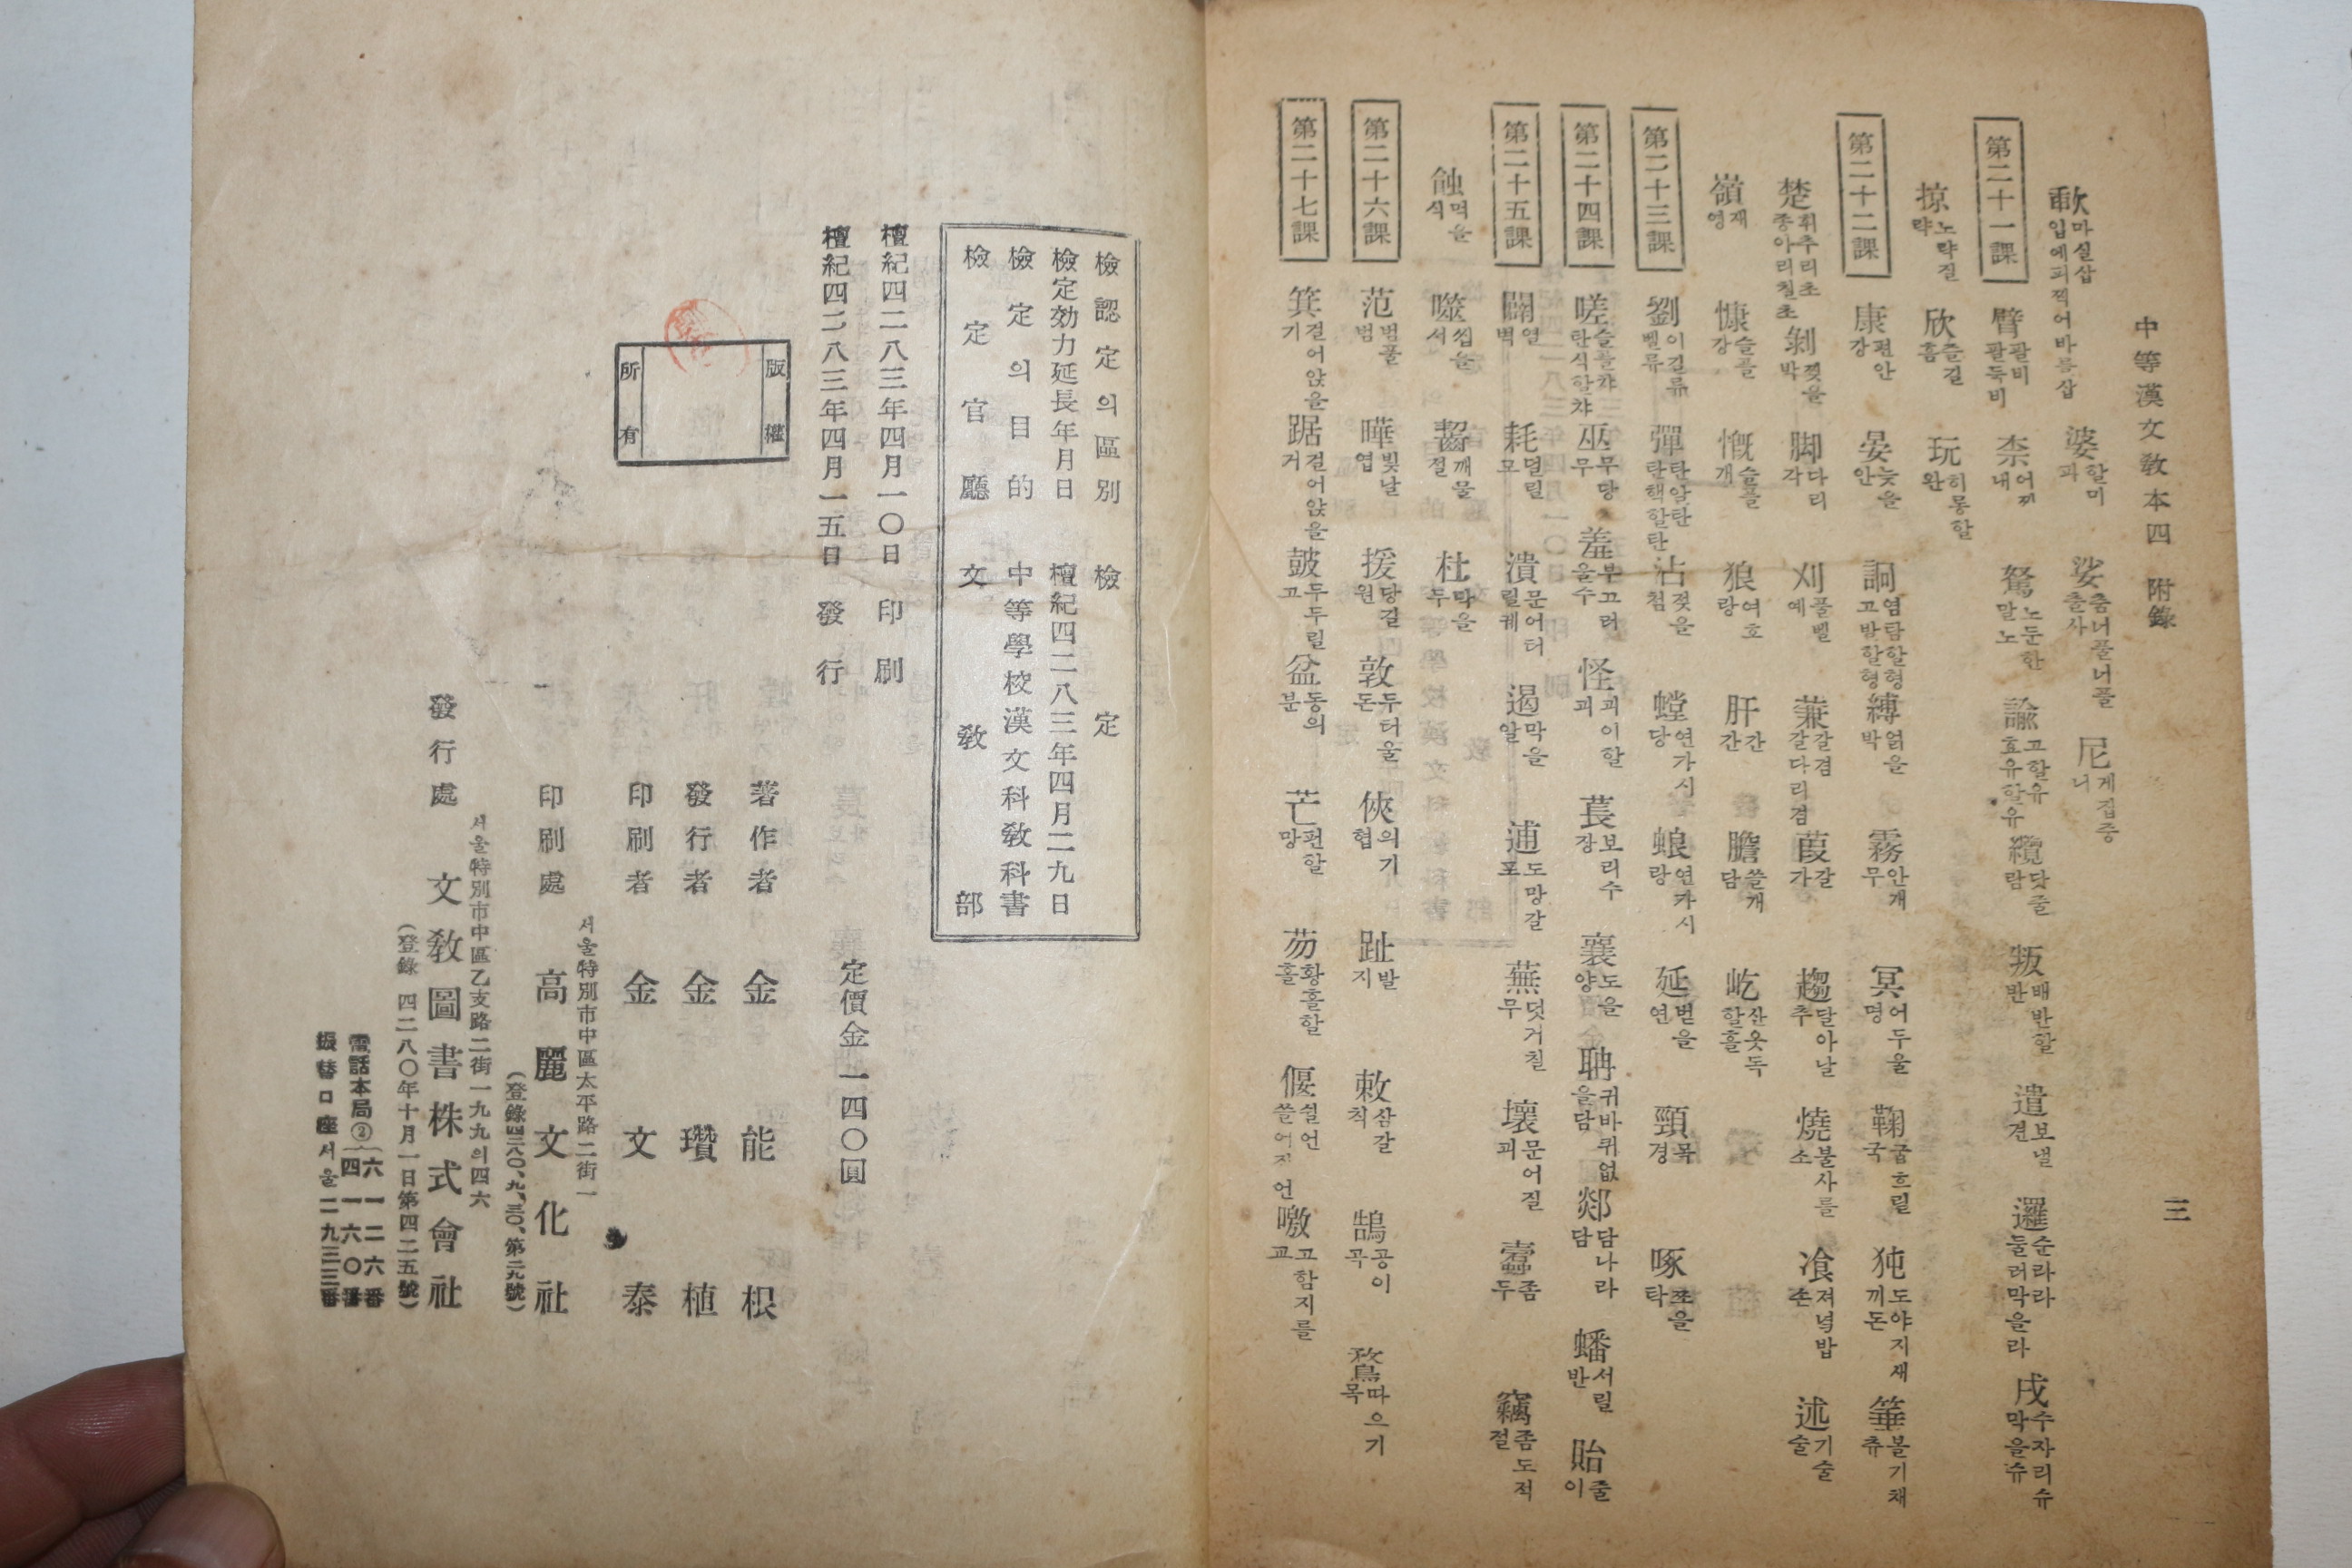 中等漢文敎本四 附錄 三
歃 마실삽 입에피찍어바를삽 婆 할미파 娑 춤너풀너풀출사 尼 게집중니
第二十一課 臂 팔비 팔뚝비 柰 어찌내 駑 노둔한말노 諭 고할유 효유할유 纜 닷줄람 叛 배반할반 遣 보낼견 邏 순라라 둘러막을라 戍 수자리슈 막을슈
掠 노략질략 欣 즐길흠 玩 히롱할완
第二十二課 康 편안강 晏 늦을안 詗 염탐할형 고발할형 縛 얽을박 霧 안개무 冥 어두울명 鞠 굽흐릴국 㹠 도야지새끼돈 箠 볼기채츄
楚 휘추리초 종아리칠초 剝 찢을박 脚 다리각 刈 풀벨예 蒹 갈겸 갈다리겸 葭 갈가 趨 달아날추 燒 불사를소 飡 져녁밥손 述 기술술
嶺 재영 慷 슬플강 慨 슬플개 狼 여호랑 肝 간간 膽 쓸개담 屹 산웃독할흘
第二十三課 劉 이길류 벨류 彈 탄알탄 탄핵할탄 沾 젖을첨 螳 연가시당 蜋 연가시랑 延 벋을연 頸 목경 啄 쪼을탁
第二十四課 嗟 슬플챠 탄식할챠 巫 무당무 羞 부끄러울수 怪 괴이할괴 萇 보리수장 襄 도을양 聃 귀바퀴없을담 郯 담나라담 蟠 서릴반 貽 줄이
第二十五課 闢 열벽 耗 덜릴모 潰 문어터릴궤 遏 막을알 逋 도망갈포 蕪 덧거칠무 壞 문어질괴 蠹 좀두 竊 좀도적절
蝕 먹을식 噬 씹을서 齧 깨물절 杜 막을두
第二十六課 范 범풀범 曄 빛날엽 援 당길원 敦 두터울돈 俠 의기협 趾 발지 敕 삼갈칙 鵠 공이곡 鶩 따으기목
第二十七課 箕 걸어앉을기 踞 걸어앉을거 鼓 두두릴고 盆 동의분 芒 편할망 芴 황홀할홀 偃 쉴언 쓸어지언 噭 고함지를교
檢認定의區別 檢定
檢定効力延長年月日 檀紀四二八三年四月二九日
檢定의目的 中等學校漢文科敎科書
檢定官廳 文敎部
檀紀四二八三年四月一〇日 印刷
檀紀四二八三年四月一五日 發行
定價金一四〇圓
版權
所有
著作者 金能根
發行者 金瓚植
印刷者 金文泰
서울特別市中區太平路二街一
印刷處 高麗文化社
(登錄四二八〇、九、三〇、第二九號)
서울特別市中區乙支路二街一九九의四六
發行處 文敎圖書株式會社
(登錄 四二八〇年十月一日第四二五號)
電話本局②{六一二六番
四一六〇番
振替口座서울二九三三番